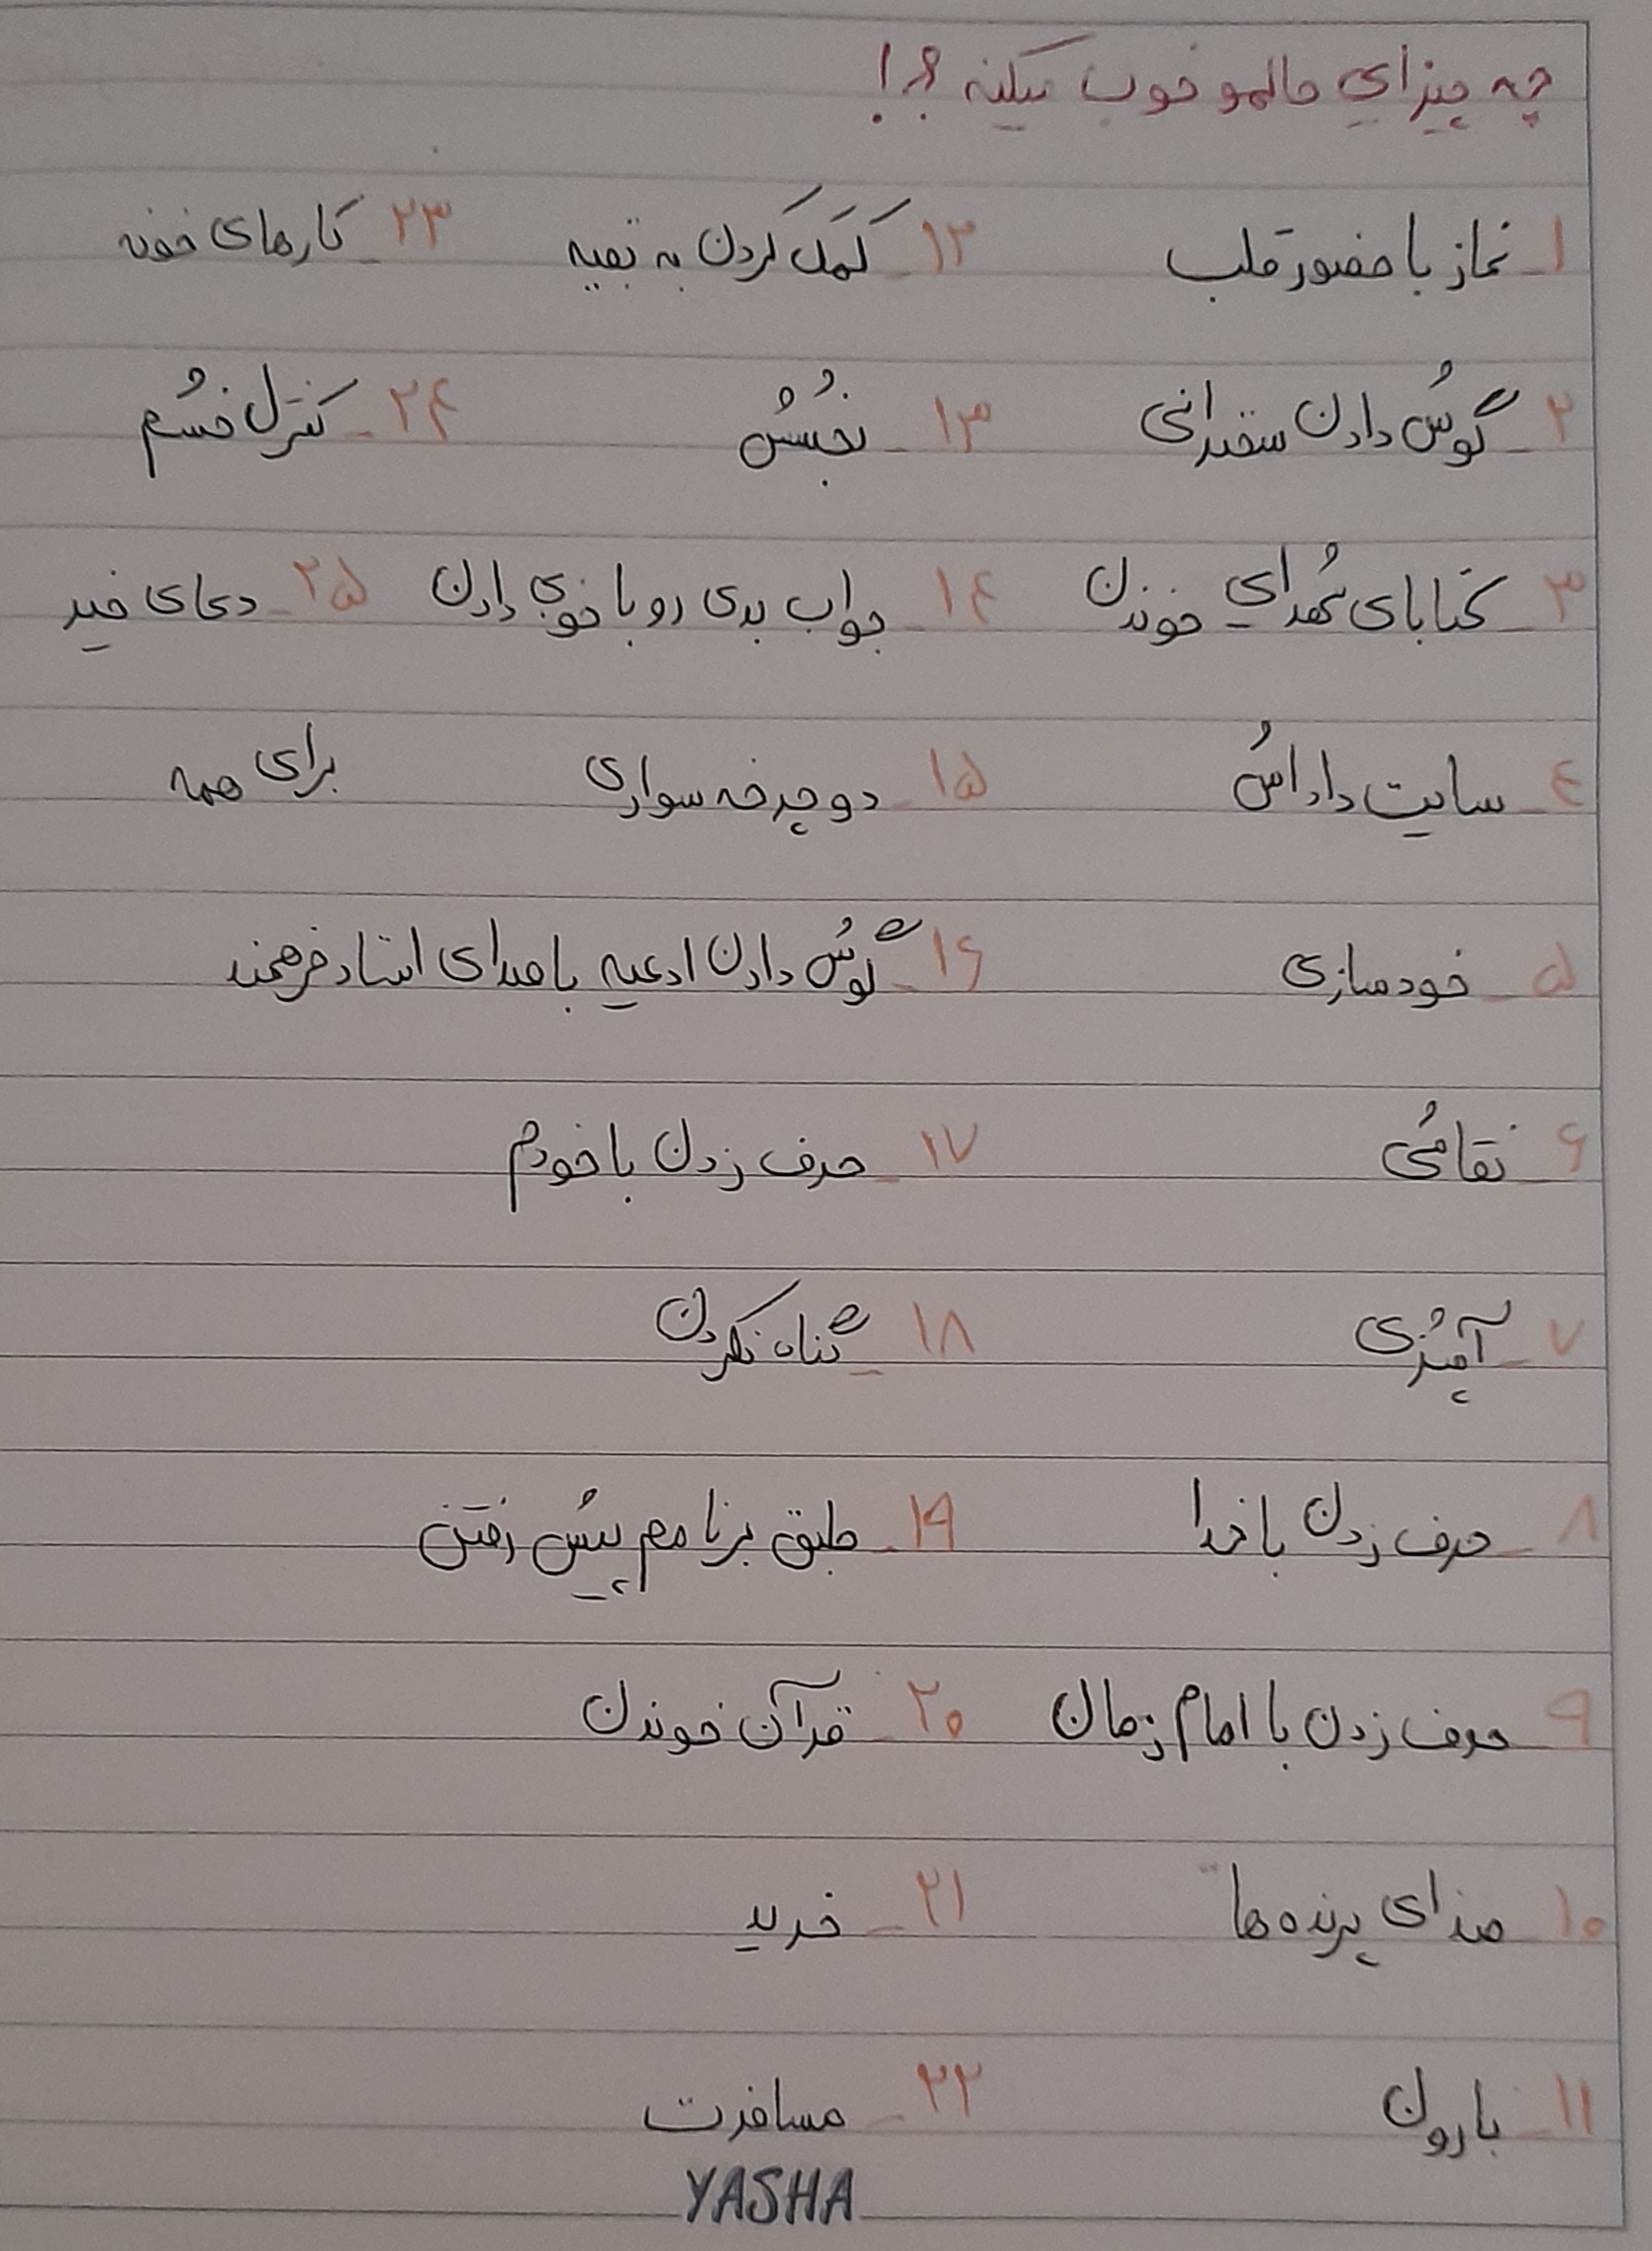 چه چیزای حالمو خوب میکنه ؟!
۱_ نماز با حضور قلب
۲_ گوش دادن سخنرانی
۳_ کتابای شهدای خوندن
۴_ سایت داداش
۵_ خودسازی
۶_ نقاشی
۷_ آشپزی
۸_ حرف زدن با خدا
۹_ حرف زدن با امام زمان
۱۰_ صدای پرنده ها
۱۱_ بارون
۱۲_ کَمَک کردن به بقیه
۱۳_ بخشش
۱۴_ جواب بدی رو با خوبی دادن
۱۵_ دوچرخه سواری
۱۶_ گوش دادن ادعیه با صدای استاد فرهمند
۱۷_ حرف زدن با خودم
۱۸_ گناه نکردن
۱۹_ طبق برنامم پیش رفتن
۲۰_ قرآن خوندن
۲۱_ خرید
۲۲_ مسافرت
۲۳_ کارهای خونه
۲۴_ کنترل خشم
۲۵_ دعای خیر
برای همه
YASHA